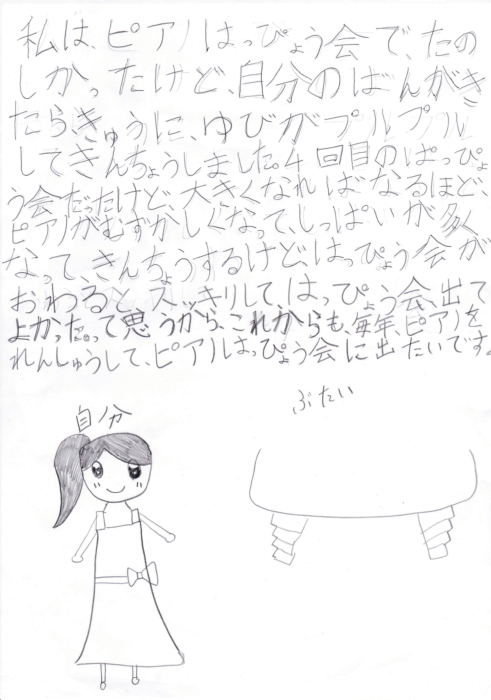 私は、ピアノはっぴょう会で、たの
しかったけど、自分のばんがき
たら、きゅうに、ゆびがプルプル
してきんちょうしました。4回目のぱっぴょ
う会だったけど、大きくなればなるほど、
ピアノがむずかしくなって、しっぱいが多く
なって、きんちょうするけど、はっぴょう会が
おわると、スッキリして、はっぴょう会、出て
よかった。って思うから、これからも、毎年、ピアノを
れんしゅうして、ピアノはっぴょう会に出たいです。
ぶたい
自分